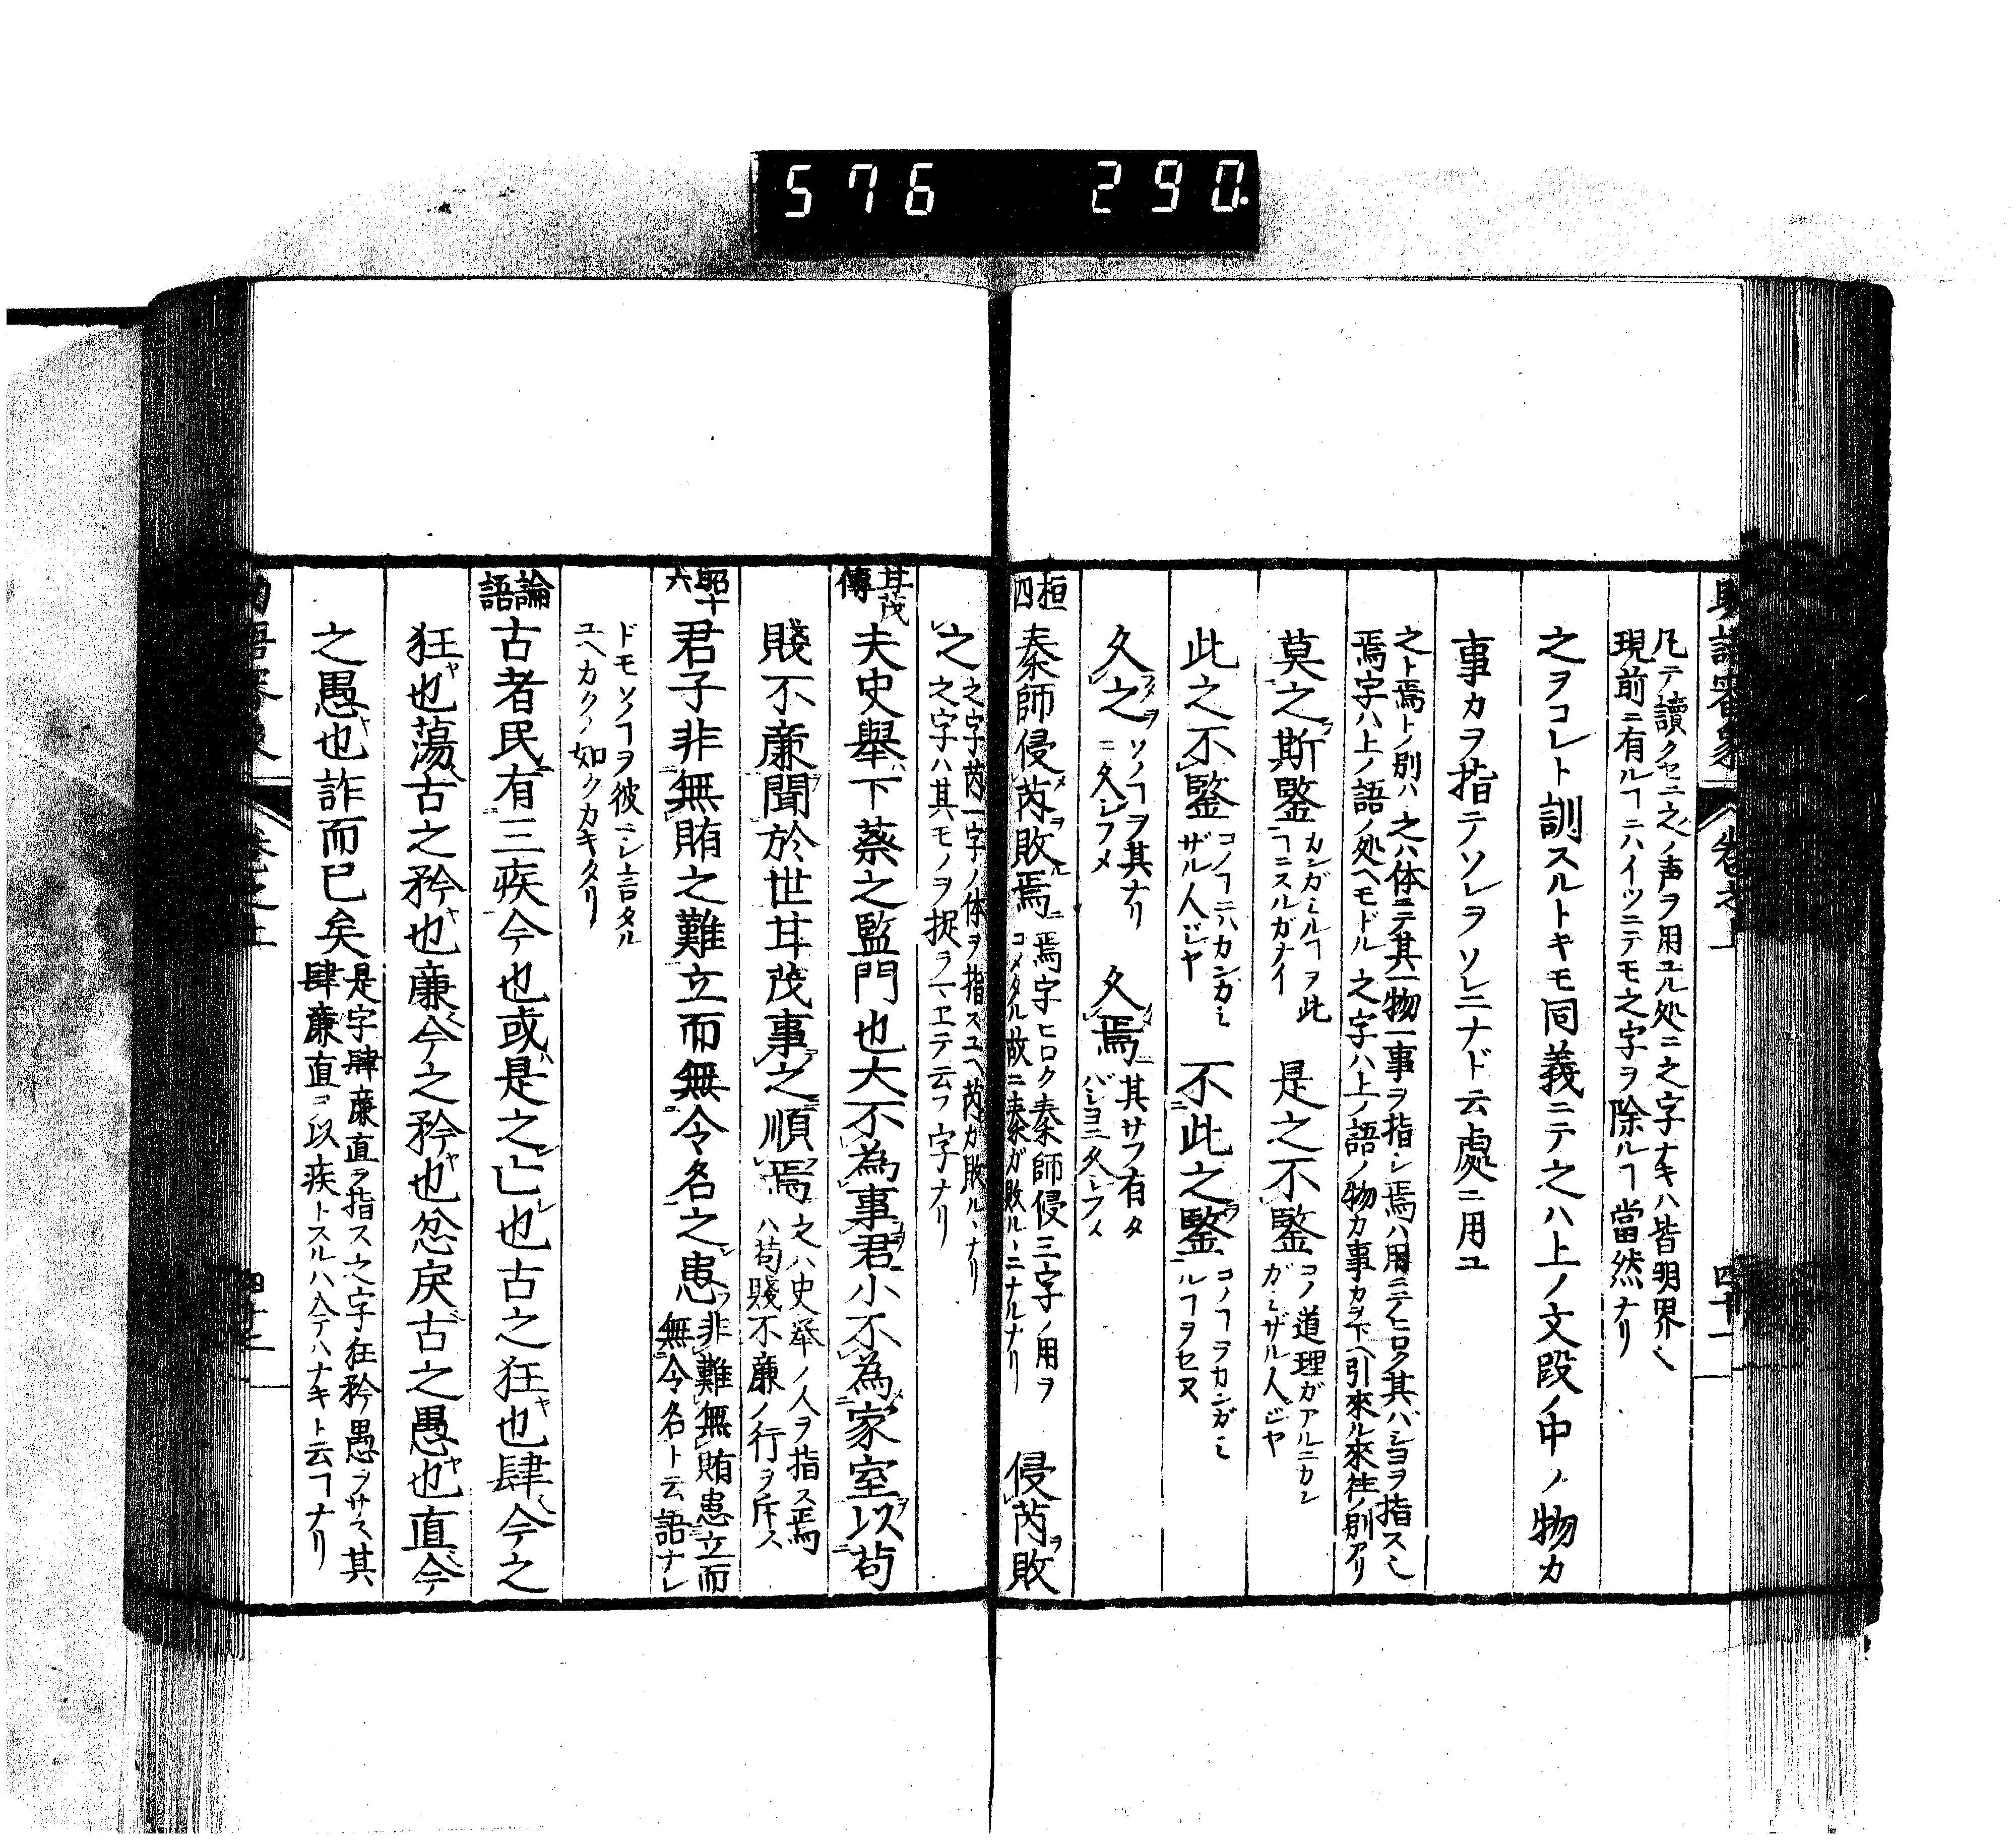 576 290
凡テ讀クセニ之ノ声ヲ用ユル処ニ之字ナキハ皆明界シ
現前ニ有ルヿニハイツニテモ之字ヲ除ルヿ當然ナリ
之ヲコレト訓スルトキモ同義ニテ之ハ上ノ文段ノ中ノ物カ
事カヲ指テソレヲソレニナド云處ニ用ユ
之ト焉トノ別ハ之ハ体ニテ其一物一事ヲ指シ焉ハ用ニテヒロク其バシヨヲ指スシ
焉字ハ上ノ語ノ処ヘモドル之字ハ上ノ語ノ物カ事カヲ下ヘ引來ル來往ノ別アリ
莫之斯鑒 カンガミルヿヲ此
ヿニスルガナイ
是之不鑒 コノ道理ガアルニカン
ガミザル人ジヤ
此之不鑒 コノヿニハカンガミ
ザル人ジヤ
不此之鑒 コノヿヲカンガミ
ルヿヲセヌ
久之 ソノヿヲ其ナリ
ニ久シフメ
久焉 其サフ有タ
バシヨニ久シフメ
桓四 秦師侵芮敗焉 焉字ヒロク秦師侵三字ノ用ヲ
コメタル故ニ秦ガ敗ル丶ニナルナリ
侵芮敗
之 之字芮一字ノ体ヲ指スユヘ芮カ敗ル丶ナリ
之字ハ其モノヲ捉ラマヱテ云フ字ナリ
甘茂傳 夫史舉下蔡之監門也大不為事君小不為家室以苟
賤不廉聞於世甘茂事之順焉 之ハ史舉ノ人ヲ指ス焉
ハ苟賤不廉ノ行ヲ斥ス
昭十六 君子非無賄之難立而無令名之患 非難無賄患立而
無令名ト云語ナレ
ドモソノヿヲ彼ニシ言タル
ユヘカクノ如クカキタリ
論語 古者民有三疾今也或是之亡也古之狂也肆今之
狂也蕩古之矜也廉今之矜也忿戾古之愚也直今
之愚也詐而已矣 是字肆廉直ヲ指ス之字狂矜愚ヲサス其
肆廉直ヲ以疾トスルハ今テハナキト云フヿナリ